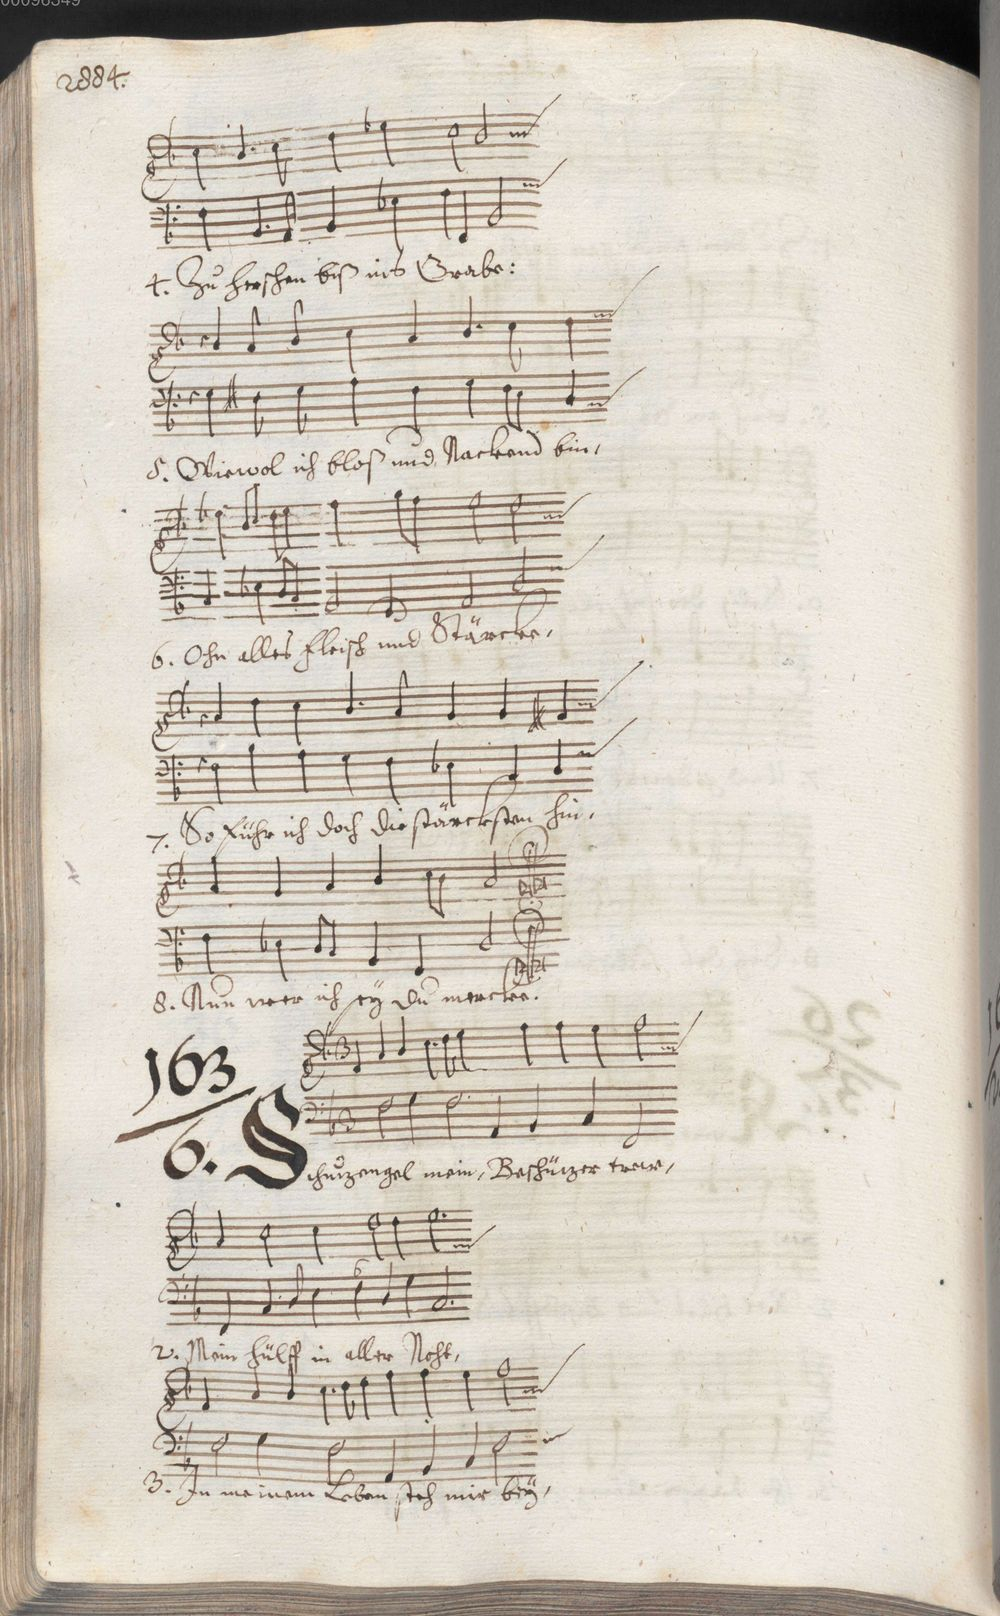 00096349
2884.
4. Zu herschen biß ins Grabe:
5. Wiewol ich bloß und Nackend bin,
6. Ohn alles fleisch und Stärcke,
7. So führ ich doch die stärcksten hin,
8. Nun wer ich sey du mercke.
163
6. Schutzengel mein, Beschützer trew,
2. Mein hülff in aller Noht,
3. In meinem Leben steh mir bey,